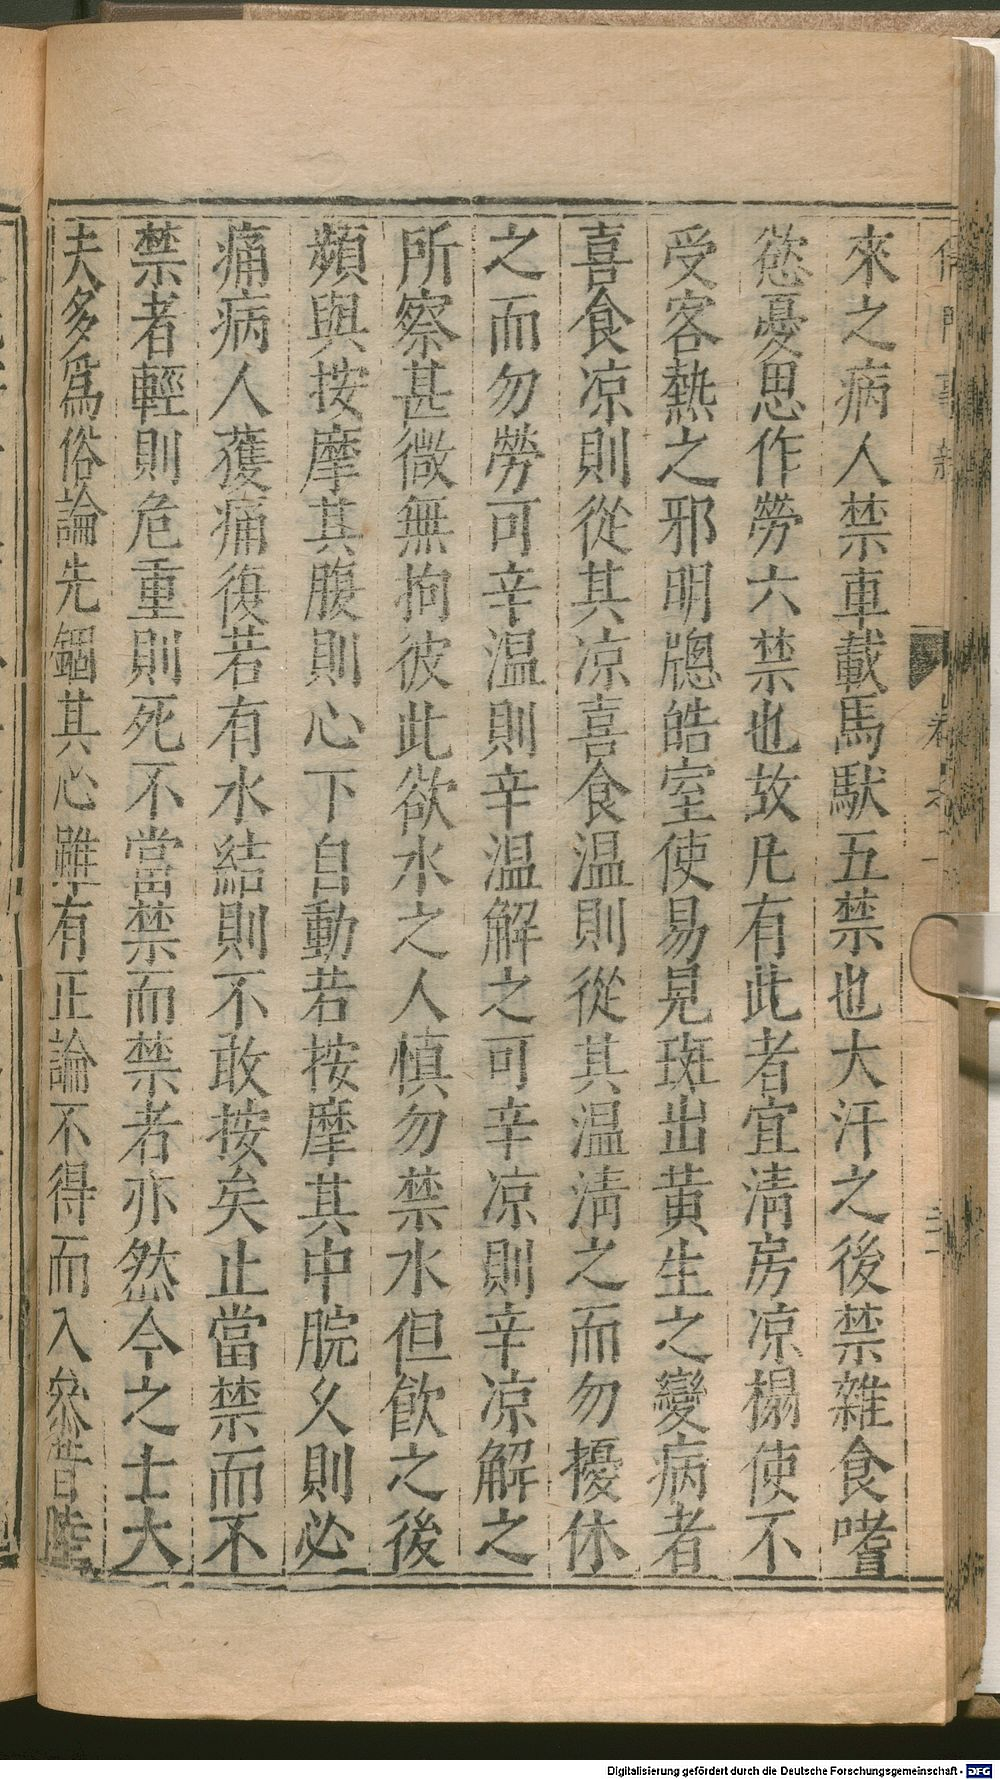 來之病人禁車載馬馱五禁也大汗之後禁雜食嗜
慾憂思作勞六禁也故凡有此者宜淸房凉榻使不
受客熱之邪明牕皓室使易見斑出黄生之變病者
喜食凉則從其凉喜食温則從其温淸之而勿擾休
之而勿勞可辛温則辛温解之可辛凉則辛凉解之
所察甚微無拘彼此欲水之人慎勿禁水但飮之後
頻與按摩其腹則心下自動若按摩其中脘久則必
痛病人獲痛復若有水結則不敢按矣止當禁而不
禁者輕則危重則死不當禁而禁者亦然今之士大
夫多爲俗論先錮其心雖有正論不得而入矣昔陸
Digitalisierung gefördert durch die Deutsche Forschungsgemeinschaft - DFG